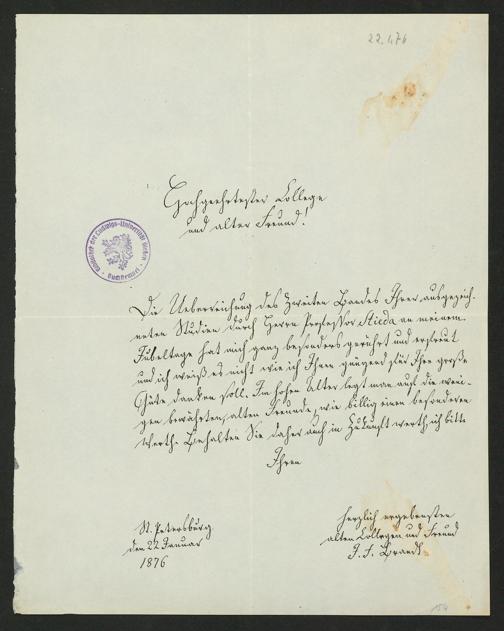 22.1.76
Hochgeehrtester College
und alter Freund!
Bibliothek der Ludwigs-Universität Gießen
Die Ueberreichung des zweiten Bandes Ihrer ausgezeich-
neten Studien durch Herrn Professor Stieda an meinem
Jubeltage hat mich ganz besonders gerührt und erfreut
und ich weiß es nicht wie ich Ihnen genügend für Ihre große
Güte danken soll. Im hohen Alter legt man auf die weni-
gen bewährten, alten Freunde, wie billig einen besonderen
Werth. Behalten Sie daher auch in Zukunft werth, ich bitte
Ihren
St. Petersburg
den 22 Januar
1876
herzlich ergebensten
alten Collegen und Freund
J. F. Brandt